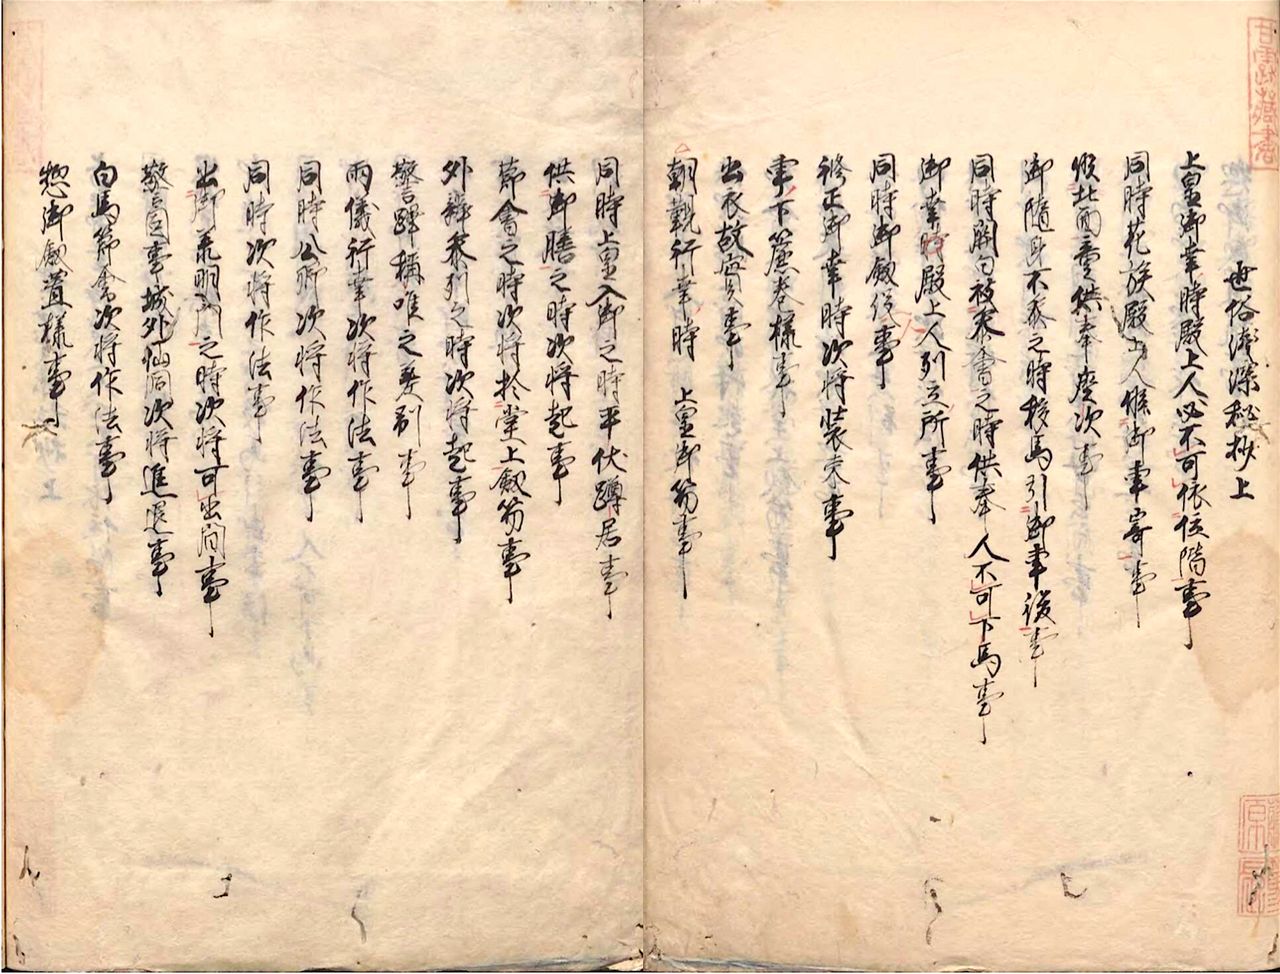 世俗浅深秘抄上
上皇御幸時殿上人必不可依位階事
同時花族殿上人候御車寄事
候北面童供奉座次事
御随身不参之時移馬引御車後事
同時関白被参會之時供奉人不可下馬事
御幸時殿上人列立所事
同時御劔役事
修正御幸時次将装束事
車下簾巻様事
出衣故實事
朝覲行幸時 上皇御笏事
同時上皇入御之時平伏蹲居事
供御膳之時次将起事
節會之時次将於堂上劔笏事
外辨参列之時次将起事
警蹕稱唯之差別事
雨儀行幸次将作法事
同時公卿次将作法事
同時次将作法事
出御義明門之時次将可出間事
警固事城外仙洞次将進退事
白馬節會次将作法事
惣御劔置様事